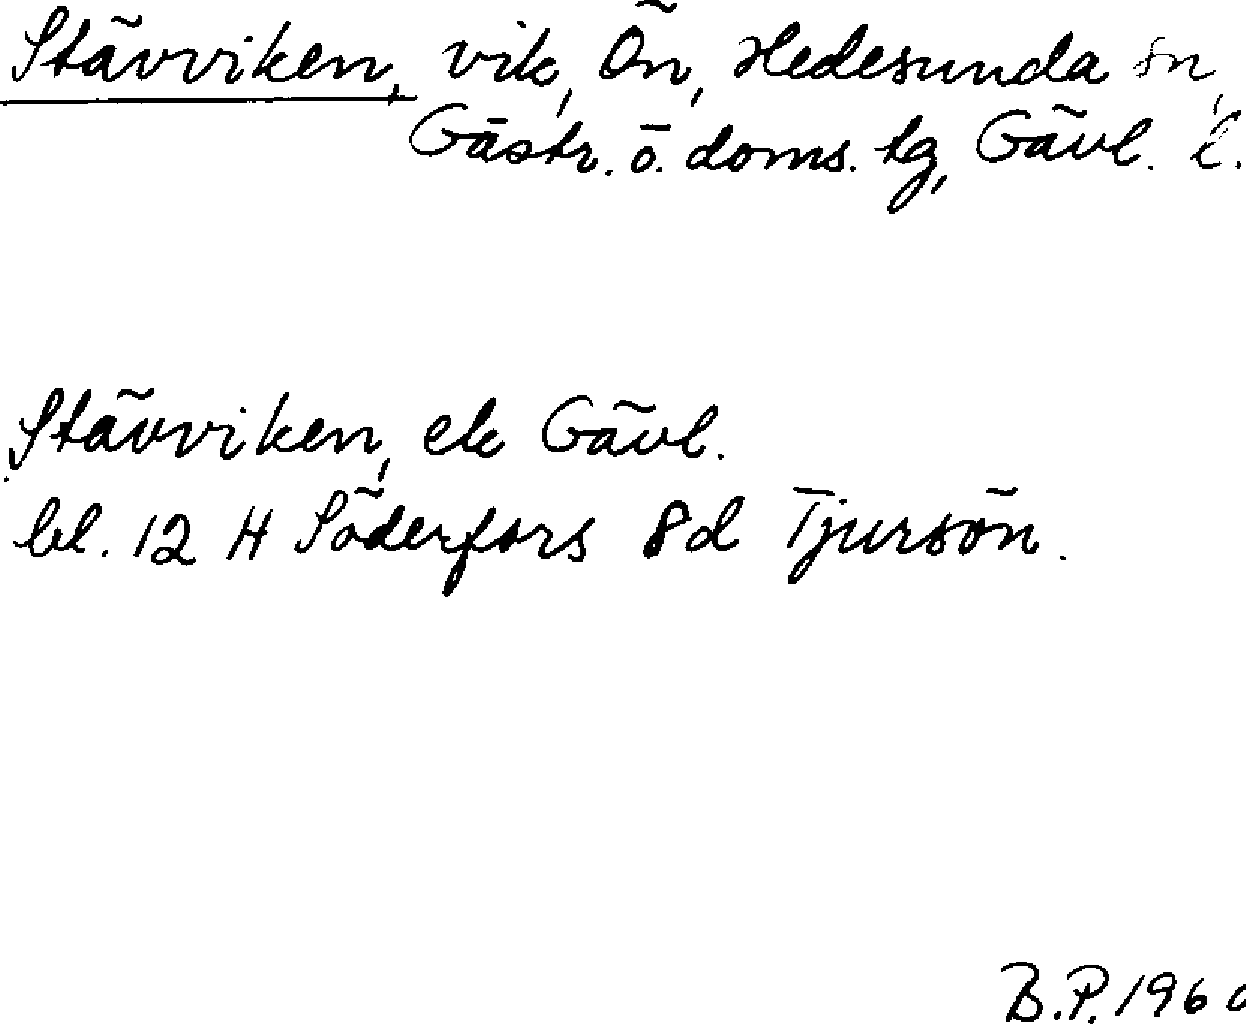 Stävviken, vik, Ön, Hedesunda sn,
Gästr. ö. doms. tg, Gävl. l.
Stävviken, ek Gävl.
bl. 12 H Söderfors 8d Tjursön.
B.P. 1960